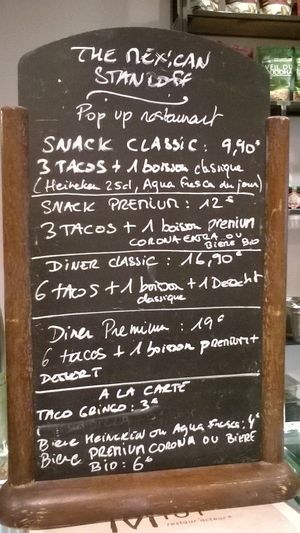 THE MEXICAN
STANDOFF
Pop up restaurant
SNACK CLASSIC : 9,90€
3 TACOS + 1 boisson classique
(Heineken 25cl, Agua Fresca du jour)
SNACK PREMIUM : 12€
3 TACOS + 1 boisson premium
CORONA EXTRA OU
BIERE BIO
DINER CLASSIC : 16,90€
6 tacos + 1 boisson + 1 Dessert
classique
Diner Premium : 19€
6 tacos + 1 boisson premium +
DESSERT
A LA CARTE
TACO GRINGO : 3€
Biere HEINEKEN ou Agua Fresca : 4€
Biere PREMIUM CORONA OU BIERE
BIO : 6€
restaur'acteurs